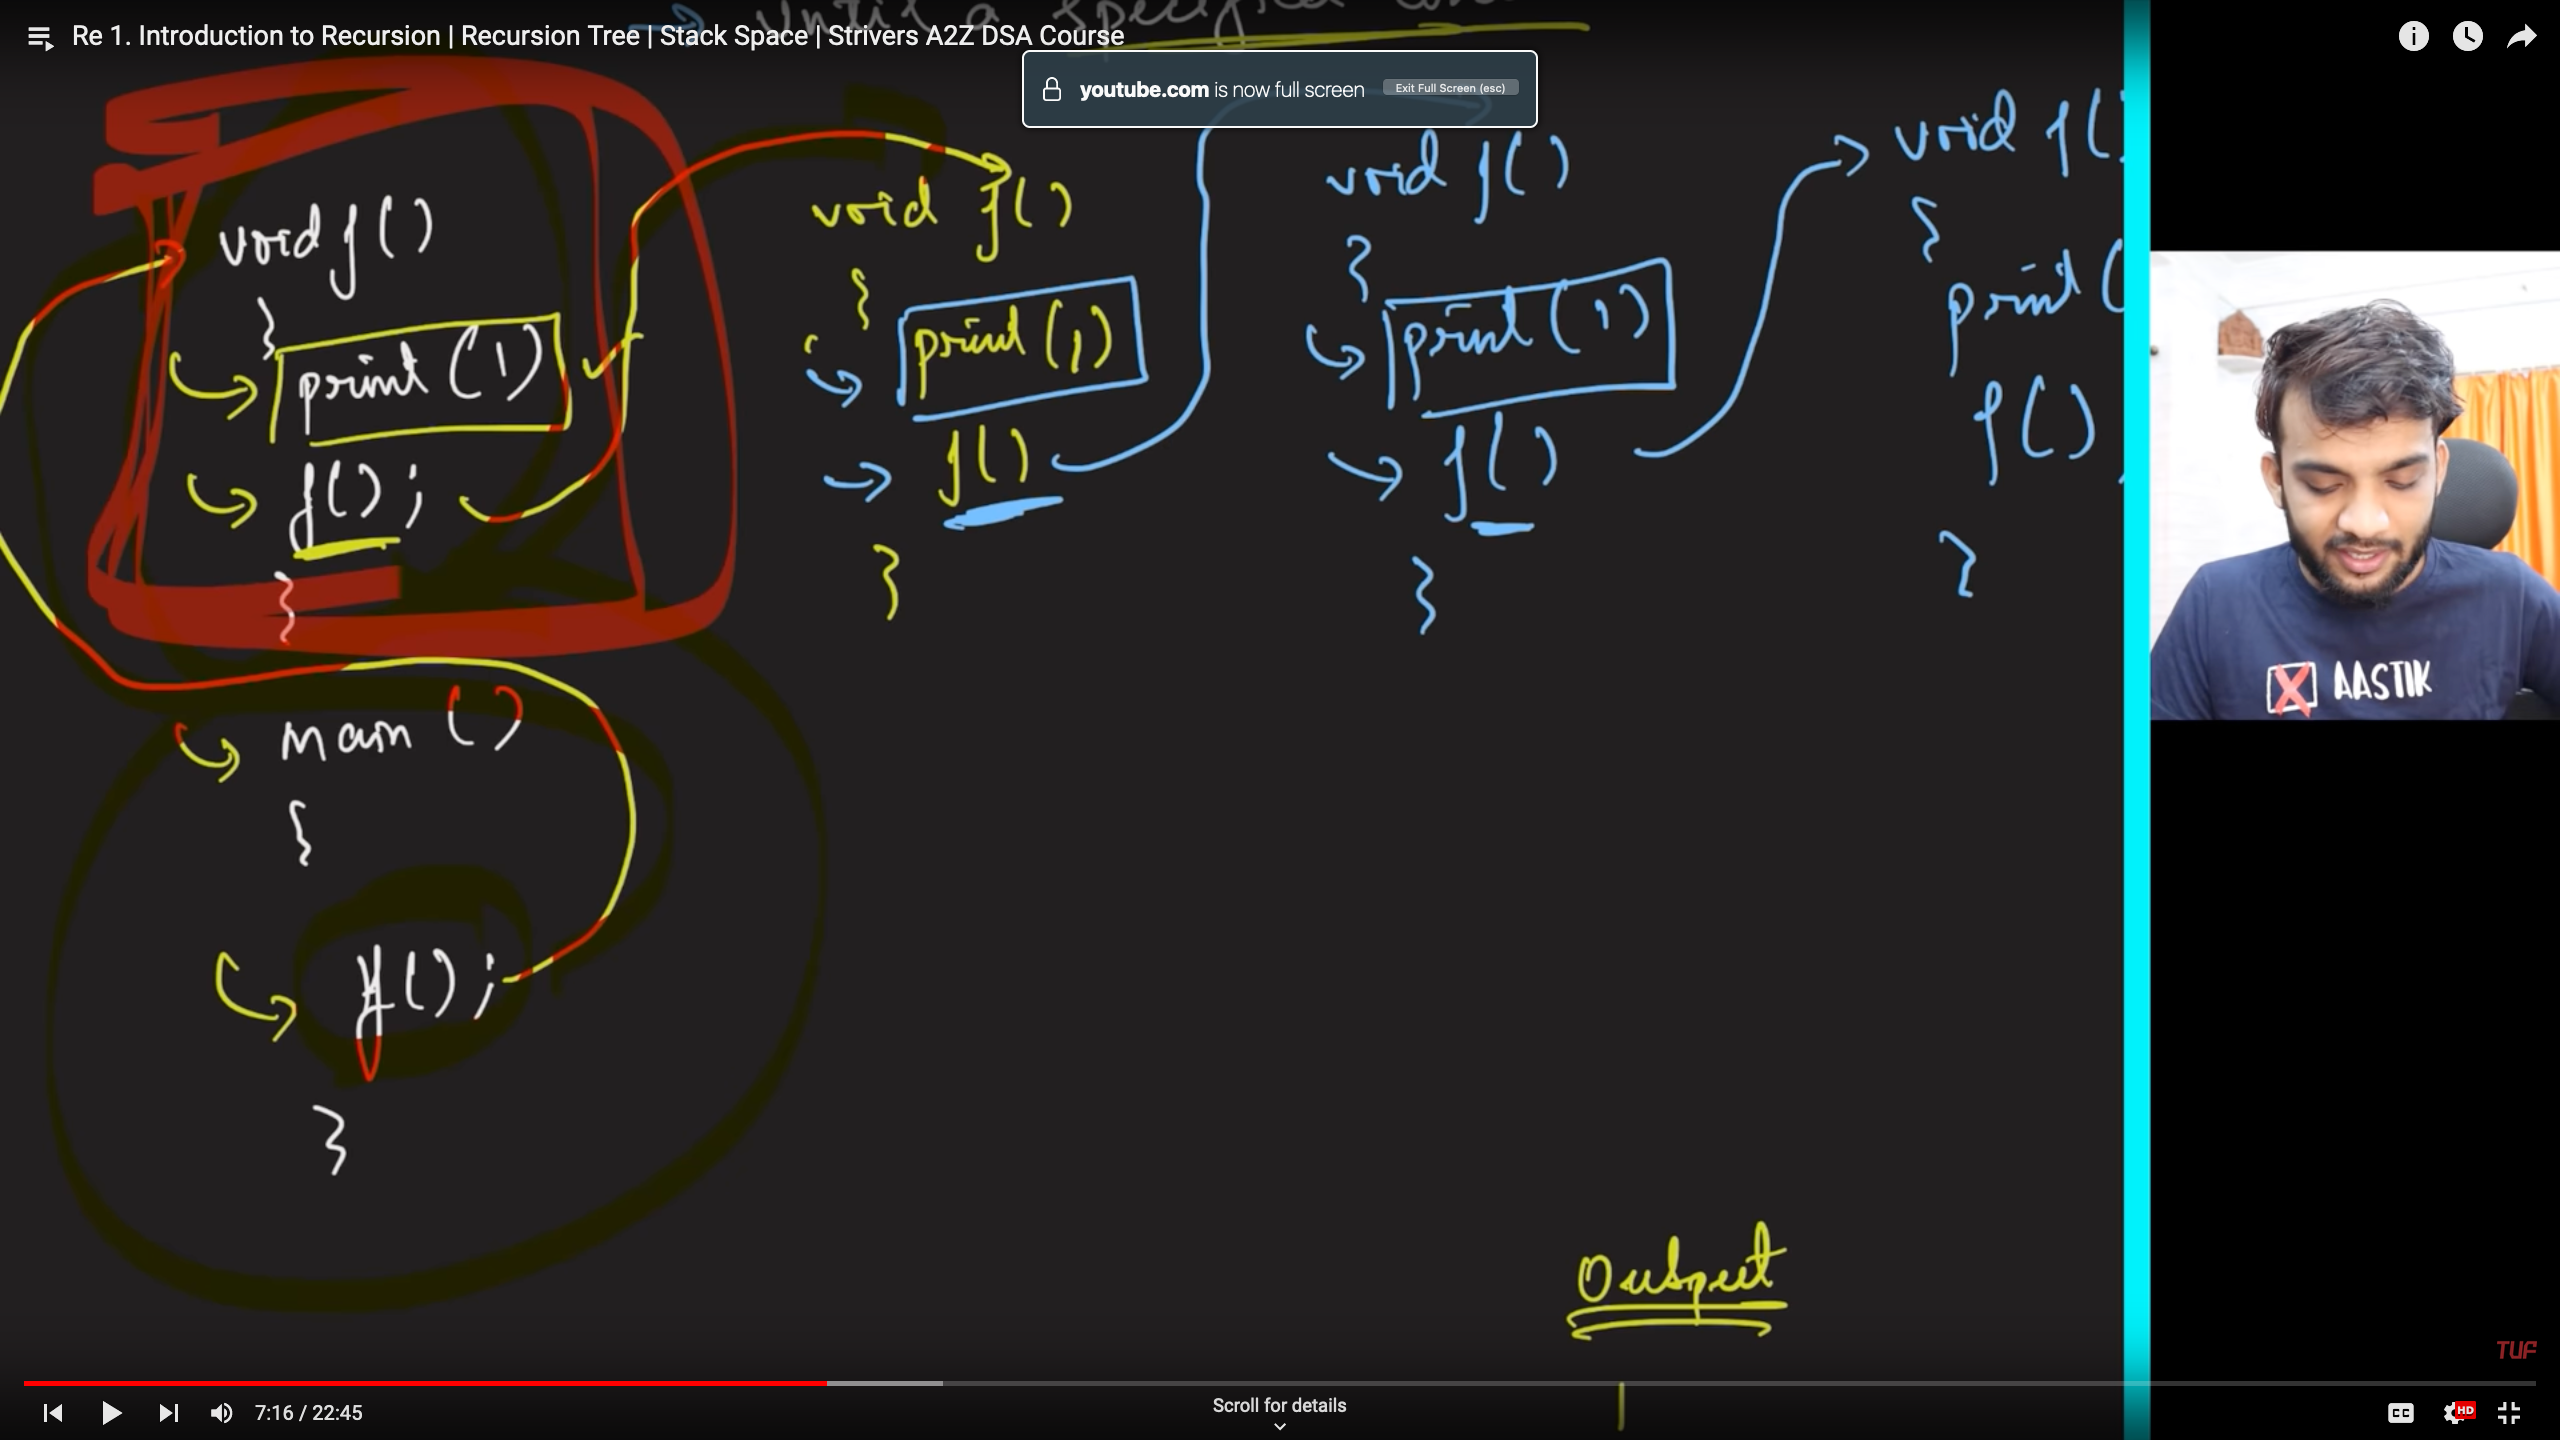 → Until a specified
Re 1. Introduction to Recursion | Recursion Tree | Stack Space | Strivers A2Z DSA Course
youtube.com is now full screen
Exit Full Screen (esc)
void f()
{
print(1)
f();
}
main()
{
f();
}
void f()
{
print(1)
f()
}
void f()
{
print(1)
f()
}
void f(
{
print(
f()
}
AASTIK
Output
1
TUF
7:16 / 22:45
Scroll for details
CC
HD